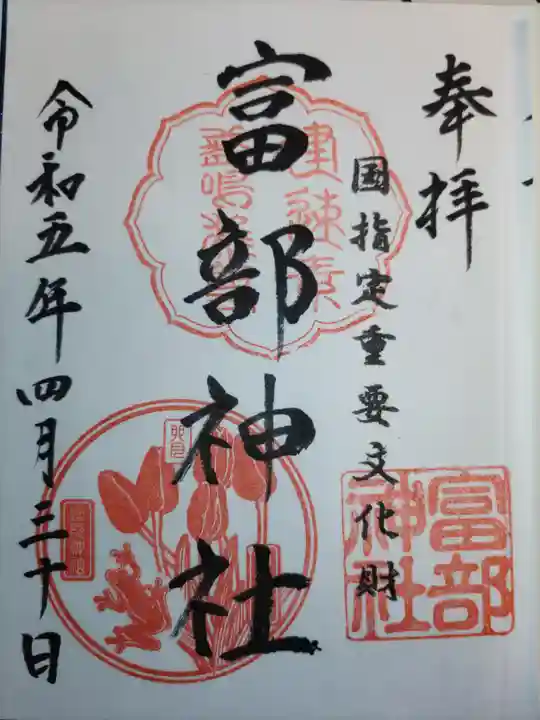 奉拝
国指定重要文化財
富部神社
令和五年四月三十日
富部
神社
卯月